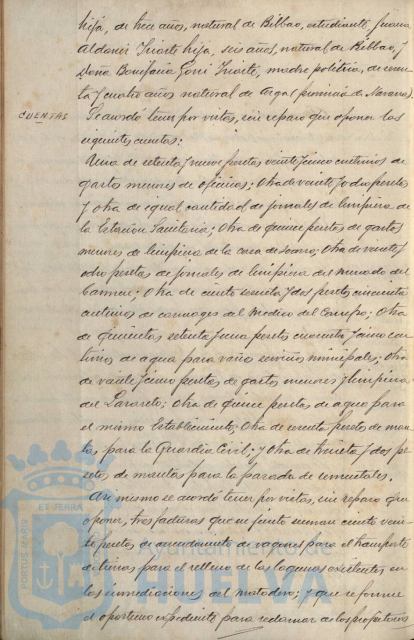 hija, de tres años, natural de Bilbao, estudiante, Juana
Aldonir Iriarte hija, seis años, natural de Bilbao, y
Doña Bonifacia Goñi Iriarte, madre política, de
y cuatro años natural de provincia de Navarra.
CUENTAS
Se acordó tener por vistas, sin reparo que oponer las
siguientes cuentas:
Una de setenta y nueve pesetas veinticinco céntimos de
gastos menores de oficinas; Otra de veinte y ocho pesetas
y otra de igual cantidad de jornales de limpieza de
la Estación Sanitaria; Otra de quince pesetas de gastos
menores de limpieza de la casa de socorro; Otra de veinte y
ocho pesetas de jornales de limpieza del mercado del
Carmen; Otra de ciento sesenta y dos pesetas cincuenta
céntimos de carruajes del Médico del Censo; Otra
de quinientas setenta y una pesetas cincuenta y cinco cén-
timos de agua para varios servicios municipales; Otra
de veinte y cinco pesetas de gastos menores y limpieza
del Lazareto; Otra de quince pesetas de agua para
el mismo Establecimiento; Otra de pesetas de man-
tas para la Guardia Civil; y otra de treinta y dos pe-
setas de mantas para la parada de sementales.
Así mismo se acordó tener por vistas, sin reparo que
oponer, tres facturas que en junto suman ciento vein-
te pesetas de arrendamiento de vagones para el transporte
de tierras para el relleno de las lagunas existentes en
las inmediaciones del matadero; y que se forme
el oportuno expediente para reclamar de los propietarios
PORTUS MARIS ET TERRAE
Ayuntamiento de
HUELVA